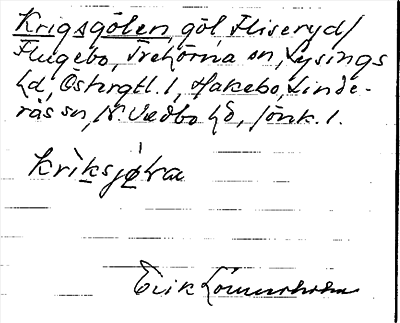 Krigsgölen göl Fliseryd/
Flugebo, Trehörna sn, Lysings
hd, Östergtl. l, Hakebo, Linde-
rås sn, N. Vedbo hd, Jönk. l.
kriksjøLa
Erik